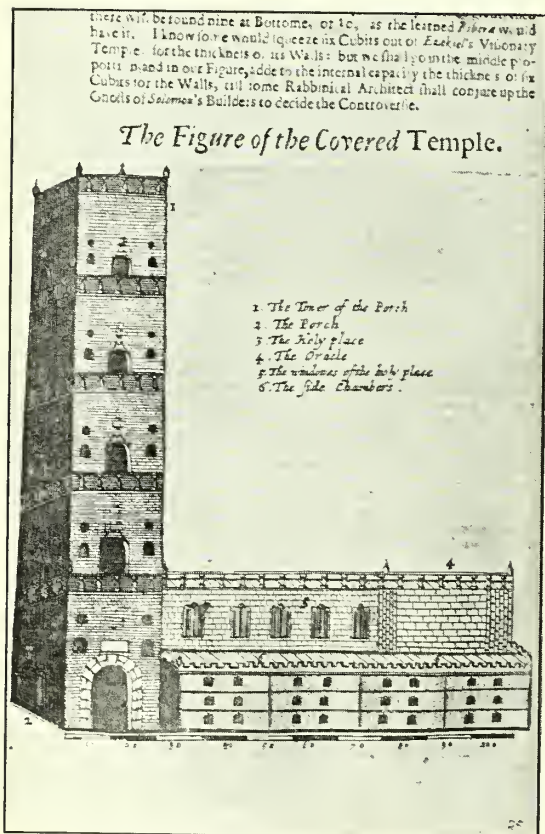 there will be found nine at Bottome, or 10, as the learned Ribera would
have it. I know some would squeeze six Cubits out of Ezekiel's Visionary
Temple for the thicknes of its Walls: but we shall point the middle pro-
porti n, and in our Figure, adde to the internal capacity the thicknes of six
Cubits for the Walls, till some Rabbinical Architect shall conjure up the
Ghosts of Solomon's Builders to decide the Controversie.
The Figure of the Covered Temple.
1
1. The Tower of the Porch
2. The Porch
3 The Holy place
4. The Oracle
5. The windows of the holy place
6. The side Chambers.
4
5
2